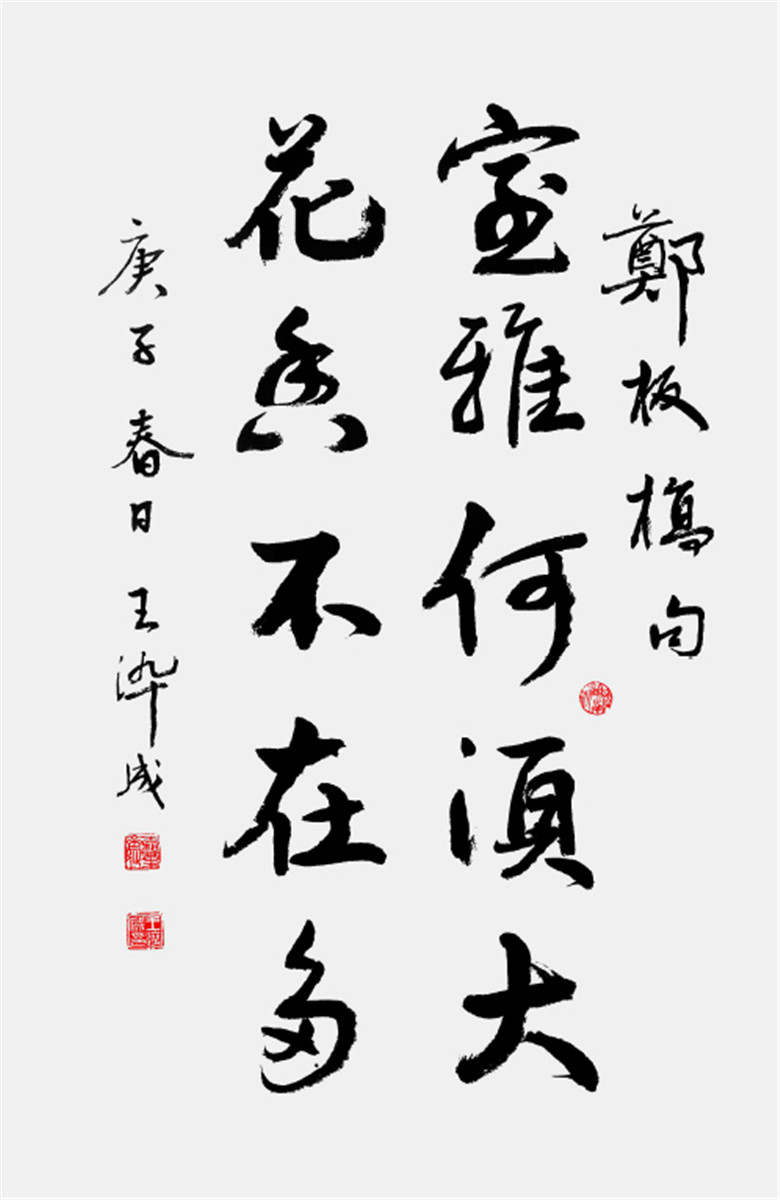 鄭板橋句
室雅何須大
花香不在多
庚子春日 王淬成